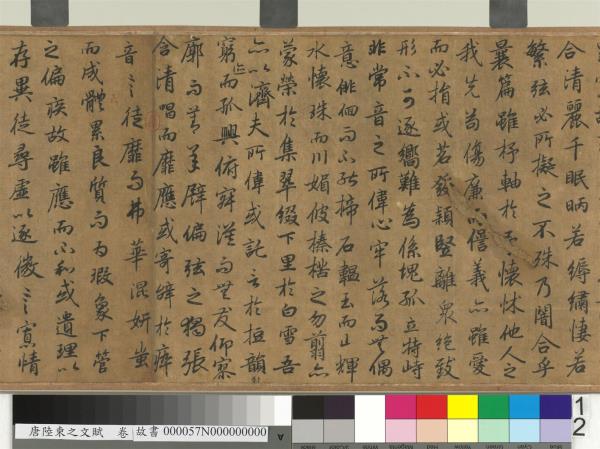 合清麗千眠昞若縟繡悽若
繁弦必所擬之不殊乃闇合乎
曩篇雖杼軸於予懷怵他人之
我先苟傷廉而愆義亦雖愛
而必捐或苕發穎豎離衆絕致
形不可逐嚮難為係塊孤立特峙
非常音之所偉心牢落而無偶
意徘徊而不能揥石韞玉而山輝
水懷珠而川媚彼榛楛之勿翦亦
蒙榮於集翠綴下里於白雪吾
亦以濟夫所偉或託言於短韻
窮迹而孤興俯寂漠而無友仰寥
廓而莫承譬偏弦之獨張
含清唱而靡應或寄辭於瘁
音言徒靡而弗華混妍蚩
而成體累良質而為瑕象下管
之偏疾故雖應而不和或遺理以
存異徒尋虛以逐微言寡情
唐陸柬之文賦 卷 故書 000057N000000000
A
12